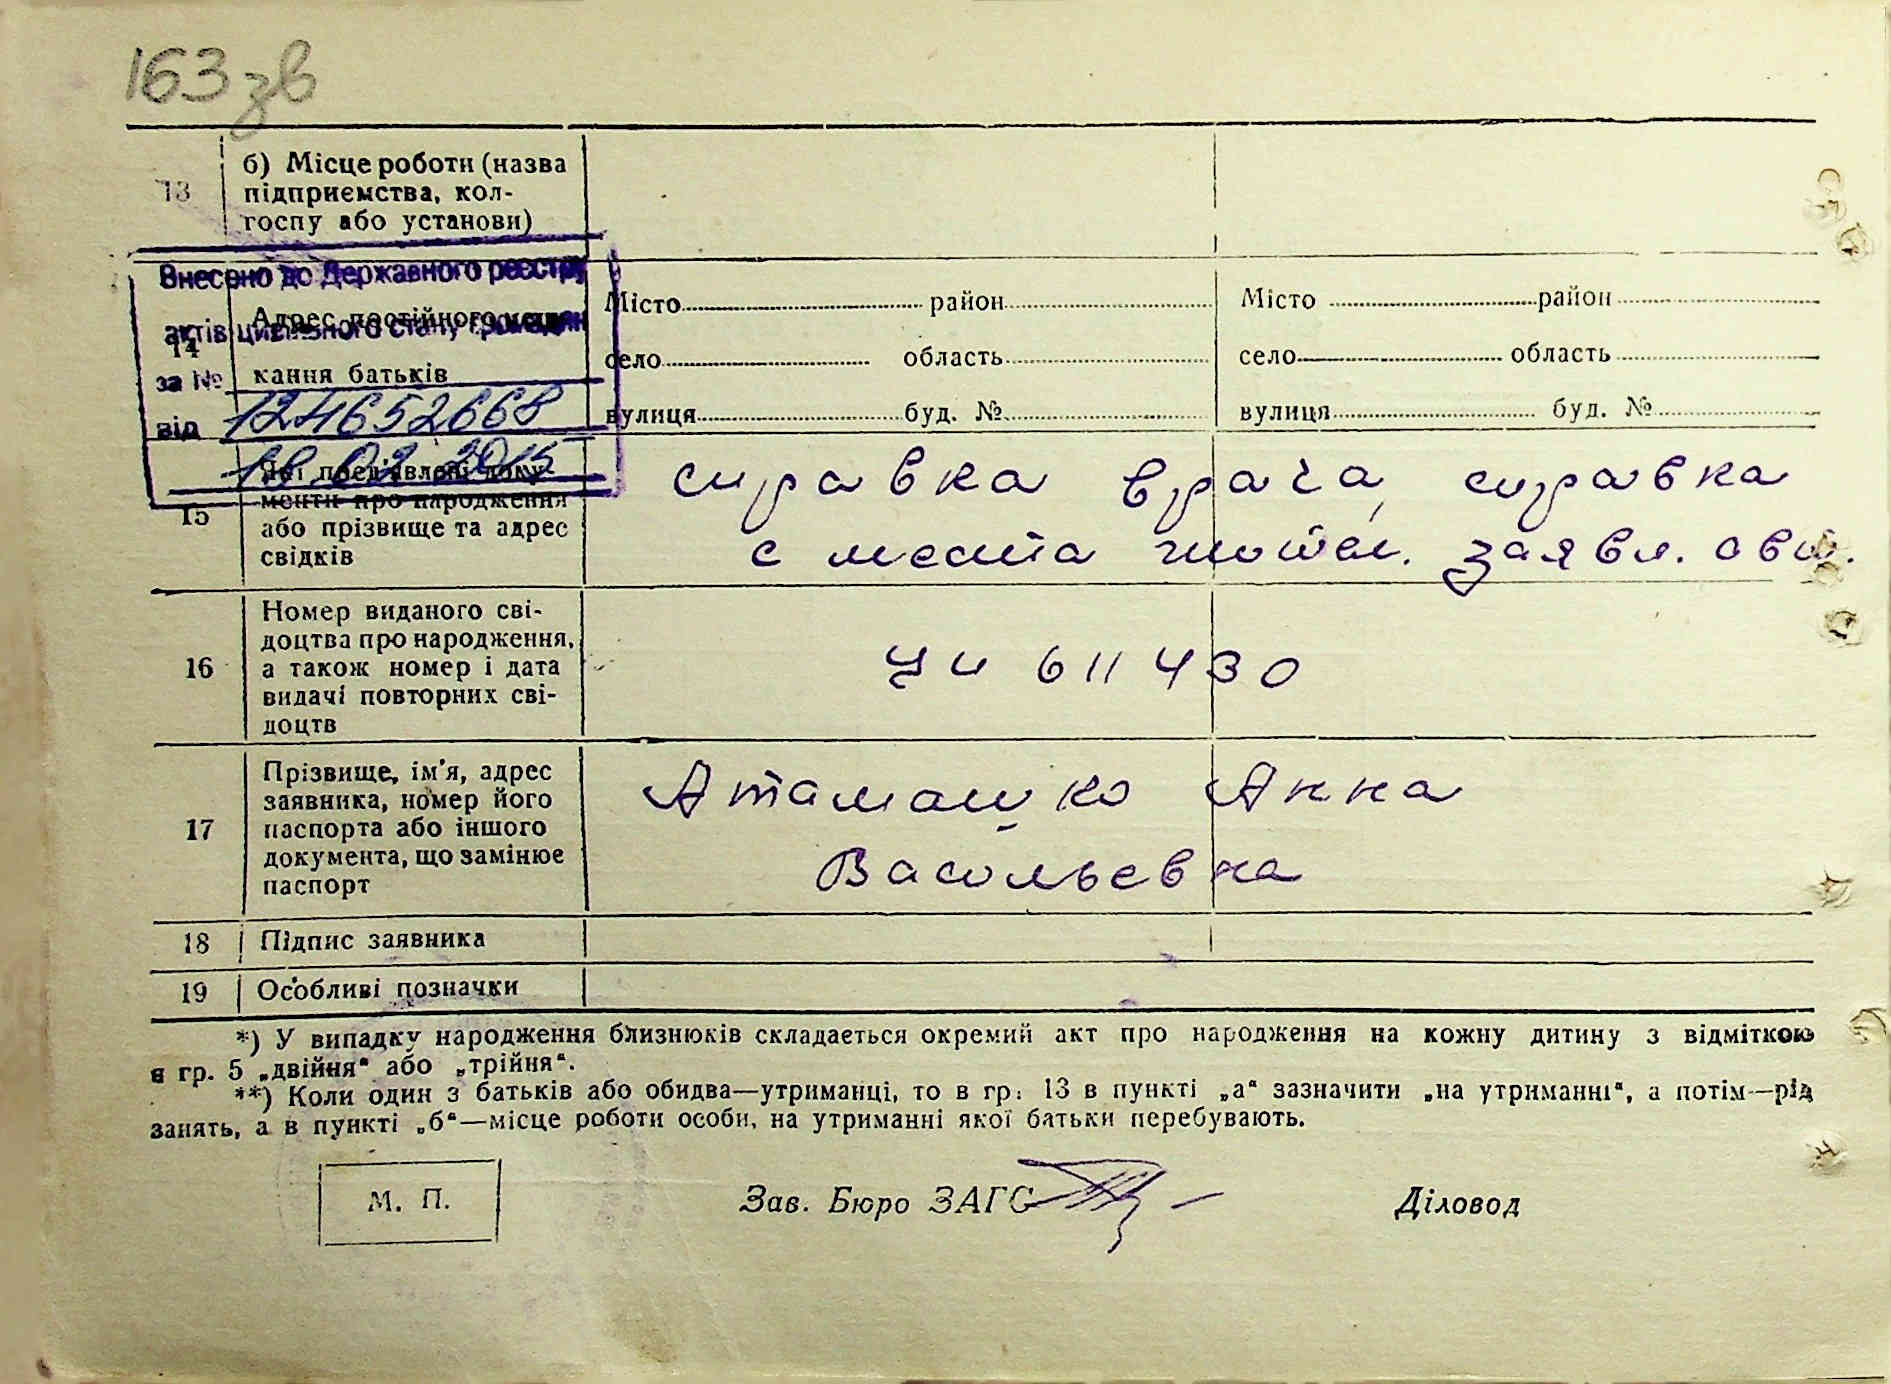 163 зв
13
б) Місце роботи (назва
підприємства, кол-
госпу або установи)
Внесено до Державного реєстру
актів цивільного стану громадян
за №
124652668
від
18 02 2015
14
Адрес постійного меш-
кання батьків
Місто район
село область
вулиця буд. №
Місто район
село область
вулиця буд. №
15
Які пред'явлені доку-
менти про народження
або прізвище та адрес
свідків
справка врача, справка
с места жител. заявл.
16
Номер виданого сві-
доцтва про народження,
а також номер і дата
видачі повторних сві-
доцтв
611430
17
Прізвище, ім'я, адрес
заявника, номер його
паспорта або іншого
документа, що замінює
паспорт
Атамашко Анна
Васильевна
18 Підпис заявника
19 Особливі позначки
*) У випадку народження близнюків складається окремий акт про народження на кожну дитину з відміткою
в гр. 5 „двійня“ або „трійня“.
**) Коли один з батьків або обидва—утриманці, то в гр. 13 в пункті „а“ зазначити „на утриманні“, а потім—рід
занять, а в пункті „б“—місце роботи особи, на утриманні якої батьки перебувають.
М. П.
Зав. Бюро ЗАГС
Діловод